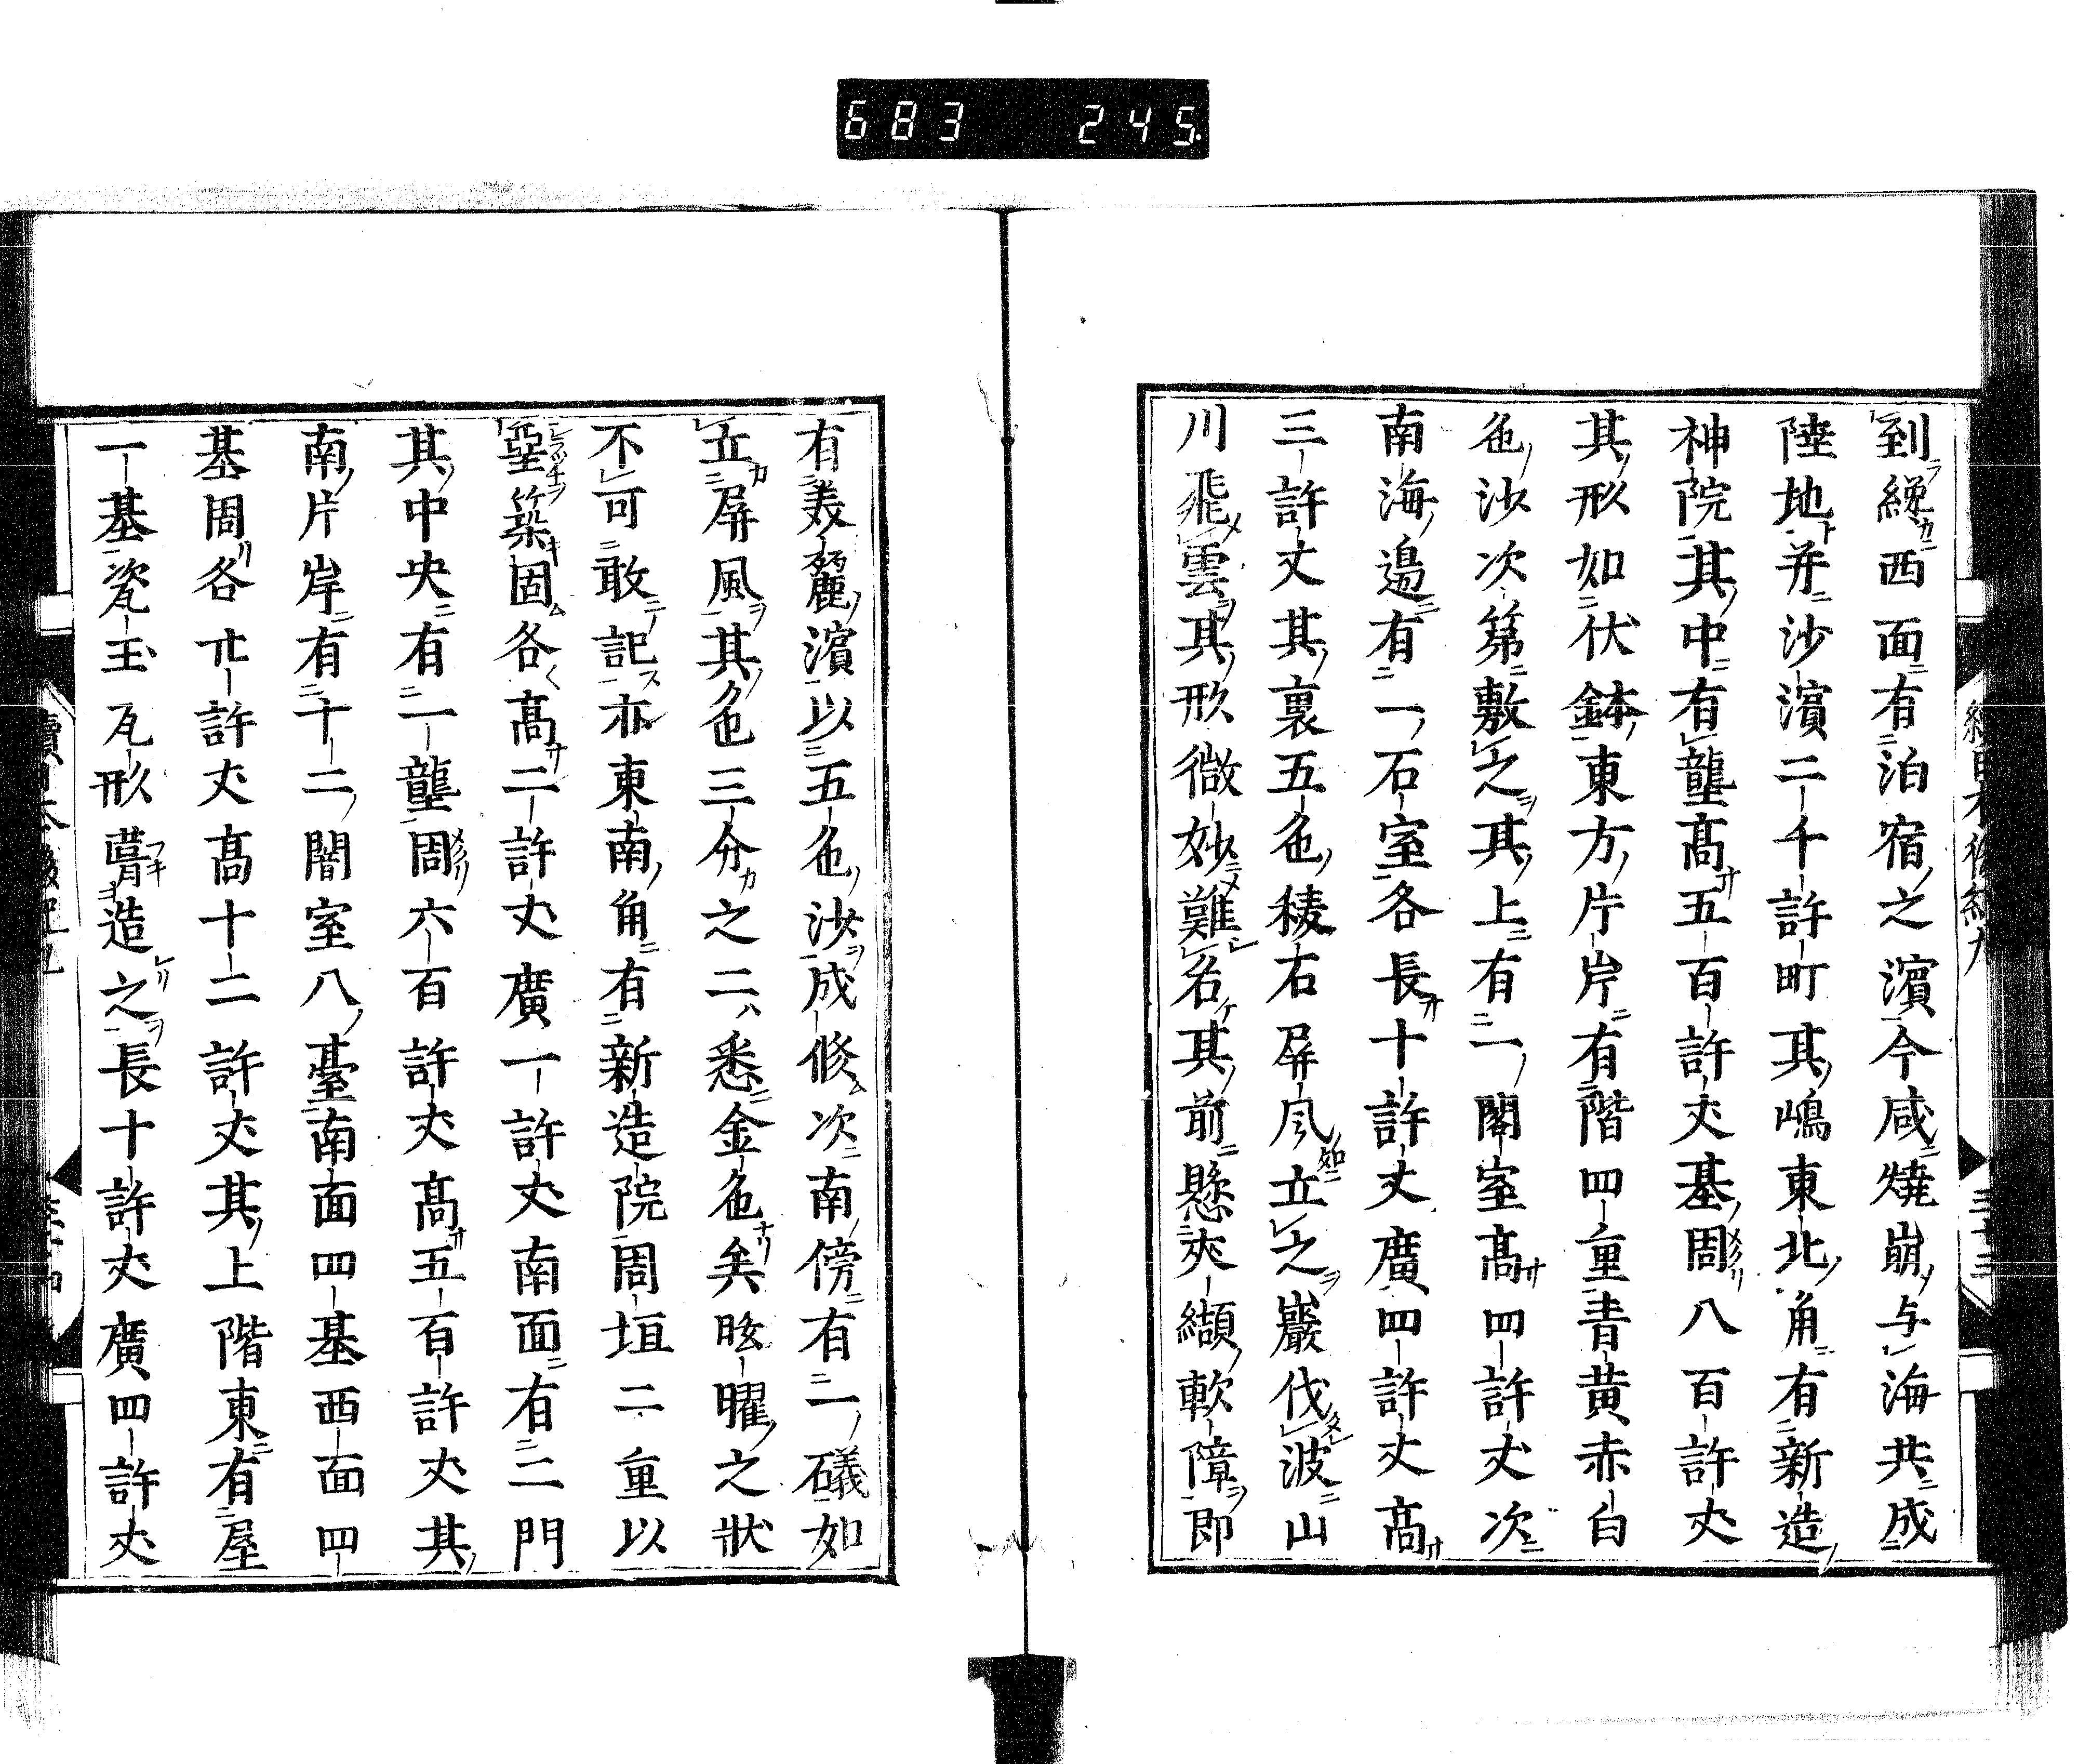 683 245.
到纔西面有泊宿之濱今咸燒崩与海共成
陸地并沙濱二千許町其嶋東北角有新造
神院其中有壟高五百許丈基周八百許丈
其形如伏鉢東方片岸有階四重青黄赤白
色沙次第敷之其上有一閣室高四許丈次
南海邊有一石室各長十許丈廣四許丈高
三許丈其裏五色稜石屏風立之巖伐波山
川飛雲其形微妙難名其前懸夾纈軟障即
有美麗濱以五色沙成修次南傍有一礒如
立屏風其色三分之二悉金色矣眩曜之狀
不可敢記亦東南角有新造院周垣二重以
堊築固各高二許丈廣一許丈南面有二門
其中央有一壟周六百許丈高五百許丈其
南片岸有十二闇室八臺南面四基西面四
基周各廿許丈高十二許丈其上階東有屋
一基瓷玉瓦形葺造之長十許丈廣四許丈